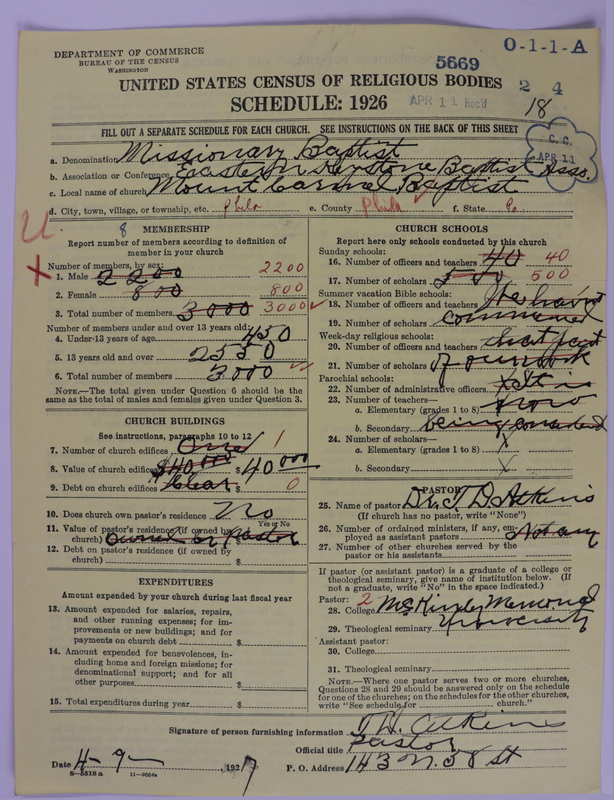 DEPARTMENT OF COMMERCE
BUREAU OF THE CENSUS
WASHINGTON
O-1-1-A
5669
UNITED STATES CENSUS OF RELIGIOUS BODIES
2 4
SCHEDULE: 1926
APR 11 Rec'd
18
FILL OUT A SEPARATE SCHEDULE FOR EACH CHURCH. SEE INSTRUCTIONS ON THE BACK OF THIS SHEET
C. C.
APR 11
a. Denomination Missionary Baptist
b. Association or Conference Eastern Keystone Baptist Asso.
c. Local name of church Mount Carmel Baptist
d. City, town, village, or township, etc. Phila e. County Phila f. State Pa.
8
MEMBERSHIP
Report number of members according to definition of
member in your church
Number of members, by sex:
X 1. Male 2200 2200
2. Female 800 800
3. Total number of members 3000 3000
Number of members under and over 13 years old:
4. Under 13 years of age 450
5. 13 years old and over 2550
6. Total number of members 3000
NOTE.—The total given under Question 6 should be the
same as the total of males and females given under Question 3.
CHURCH BUILDINGS
See instructions, paragraphs 10 to 12
7. Number of church edifices One 1
8. Value of church edifices $40,000 $ 40000
9. Debt on church edifices Clear $ 0
10. Does church own pastor's residence No
Yes or No
11. Value of pastor's residence (if owned by
church) Owned by Pastor
12. Debt on pastor's residence (if owned by
church) $
EXPENDITURES
Amount expended by your church during last fiscal year
13. Amount expended for salaries, repairs,
and other running expenses; for im-
provements or new buildings; and for
payments on church debt $
14. Amount expended for benevolences, in-
cluding home and foreign missions; for
denominational support; and for all
other purposes $
15. Total expenditures during year $
CHURCH SCHOOLS
Report here only schools conducted by this church
Sunday schools:
16. Number of officers and teachers 40 40
17. Number of scholars 500 500
Summer vacation Bible schools:
18. Number of officers and teachers We haven't
19. Number of scholars commenced
Week-day religious schools:
20. Number of officers and teachers that part
21. Number of scholars of our work
Parochial schools:
22. Number of administrative officers X It is
23. Number of teachers—
a. Elementary (grades 1 to 8) now
b. Secondary being considered
24. Number of scholars—
a. Elementary (grades 1 to 8) X
b. Secondary X
PASTOR
25. Name of pastor Dr. T. D. Atkins
(If church has no pastor, write "None")
26. Number of ordained ministers, if any, em-
ployed as assistant pastors Not any
27. Number of other churches served by the
pastor or his assistants
If pastor (or assistant pastor) is a graduate of a college or
theological seminary, give name of institution below. (If
not a graduate, write "No" in the space indicated.)
Pastor: 2
28. College McKinley Memorial
29. Theological seminary University
Assistant pastor:
30. College
31. Theological seminary
NOTE.—Where one pastor serves two or more churches,
Questions 28 and 29 should be answered only on the schedule
for one of the churches; on the schedules for the other churches,
write "See schedule for church."
Signature of person furnishing information T. D. Atkins
Official title Pastor
Date 4-9-, 1927 P. O. Address 143 N. 58 St
8-5518 a